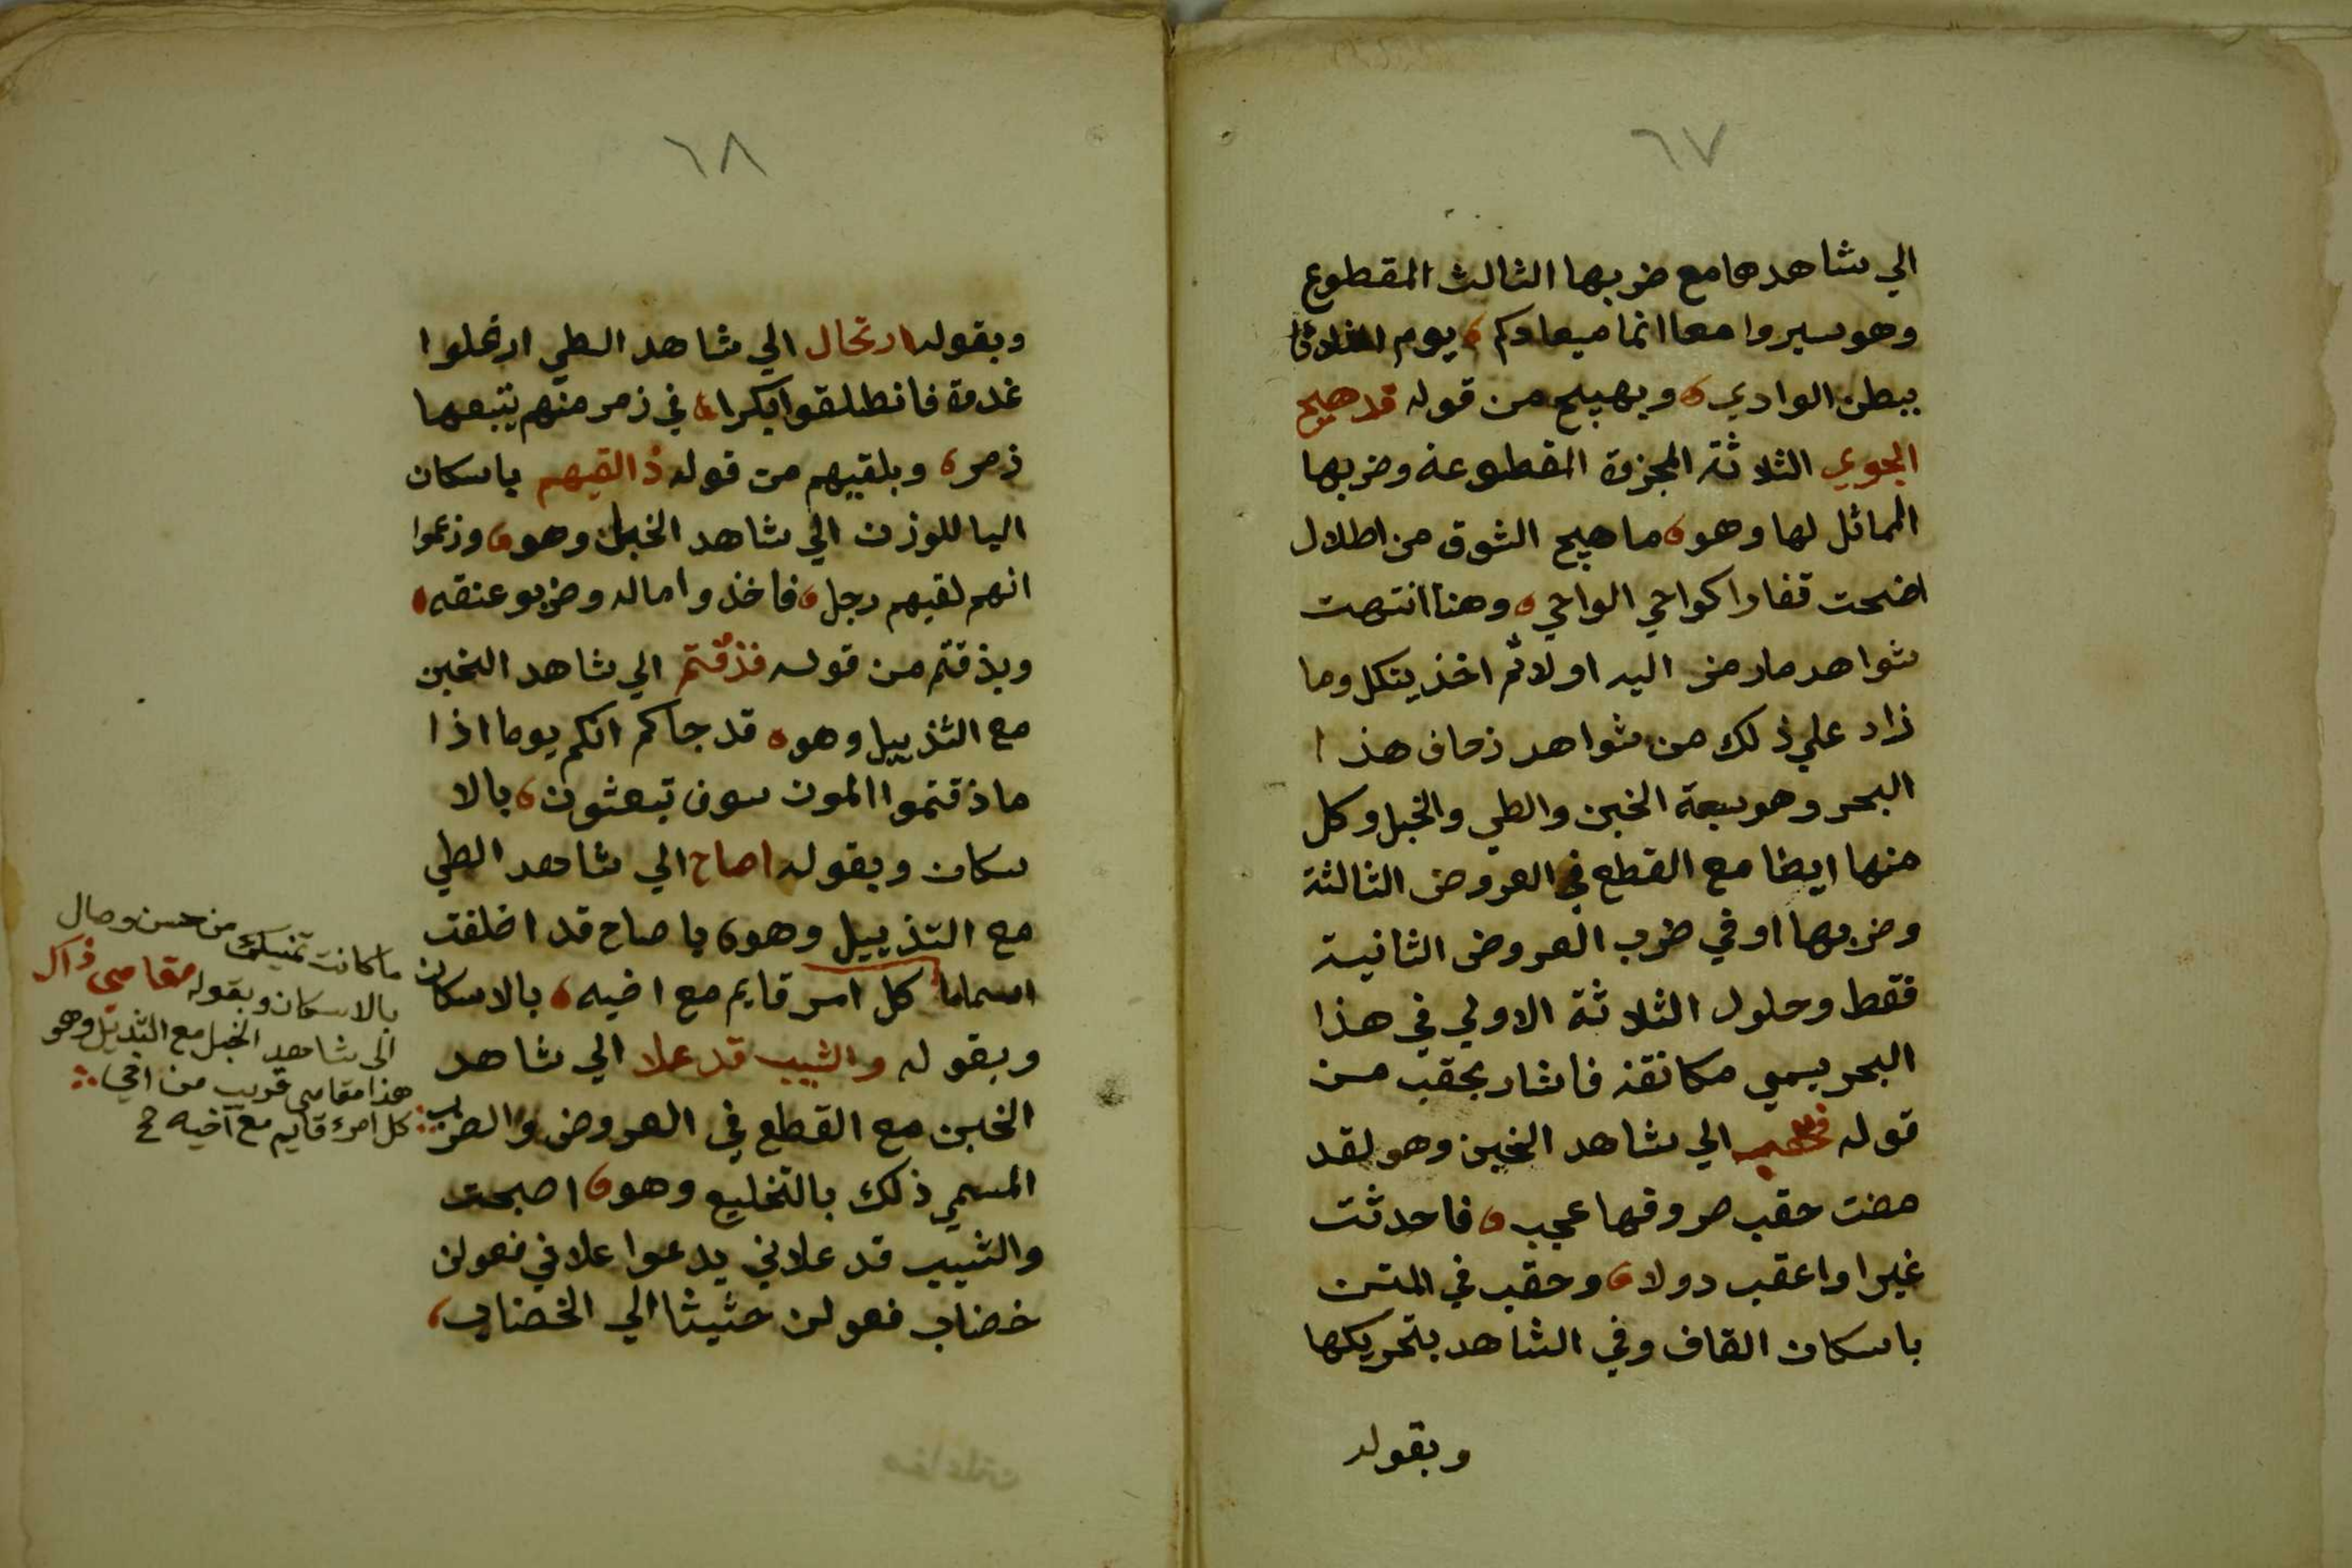 ٦٧
الي شاهدها مع ضربها الثالث المقطوع
وهو سيروا معا انما ميعادكم، يوم الثلاثا
ببطن الوادي، وبهيج من قوله قد هيج
الجوي الثلاثة المجزؤة المقطوعة وضربها
المماثل لها وهو، ما هيج الشوق من اطلال
اضحت قفارا كواحي الواحي، وهنا انتهت
شواهد ما رمز اليه اولا ثم اخذ يتكلم
زاد علي ذلك من شواهد زحاف هذا
البحر وهو سبعة الخبن والطي والخبل وكل
منها ايضا مع القطع في العروض الثالثة
وضربها او في ضرب العروض الثانية
فقط وحلول الثلاثة الاولي في هذا
البحر يسمي مكانفة فاشار بحقب من
قوله الي شاهد الخبن وهو لقد
مضت حقب صروفها عجب، فاحدثت
غيرا واعقب دولا، وحقب في المتن
باسكان القاف وفي الشاهد بتحريكها
وبقوله
٦٨
وبقوله ارتحال الي شاهد الطي ارتحلوا
غدوة فانطلقوا بكرا، في زمر منهم يتبعها
زمر، وبلقيهم من قوله ذا لقيهم باسكان
اليا للوزن الي شاهد الخبل وهو، وزعموا
انهم لقيهم رجل، فاخذوا ماله وضربو عنقه،
وبذقتم من قوله فذقتم الي شاهد الخبن
مع التذييل وهو، قد جاكم انكم يوما اذا
ما ذقتموا الموت سوف تبعثون، بالا
سكان وبقوله اصاح الي شاهد الطي
مع التذييل وهو، يا صاح قد اخلفت
اسماما كل امر قايم مع اخيه، بالاسكان
وبقوله والشيب قد علا الي شاهد
الخبن مع القطع في العروض والضرب
المسمي ذلك بالتخليع وهو، اصبحت
والشيب قد علاني يدعوا علاني فعولن
خضاب فعولن حثيثا الي الخضاب،
ما كانت تمنيك من حسن وصال
بالاسكان وبقوله مقامي ذاك
الى شاهد الخبل مع التذييل وهو
هذا مقامي قريب من اخي
كل امرئ قايم مع اخيه